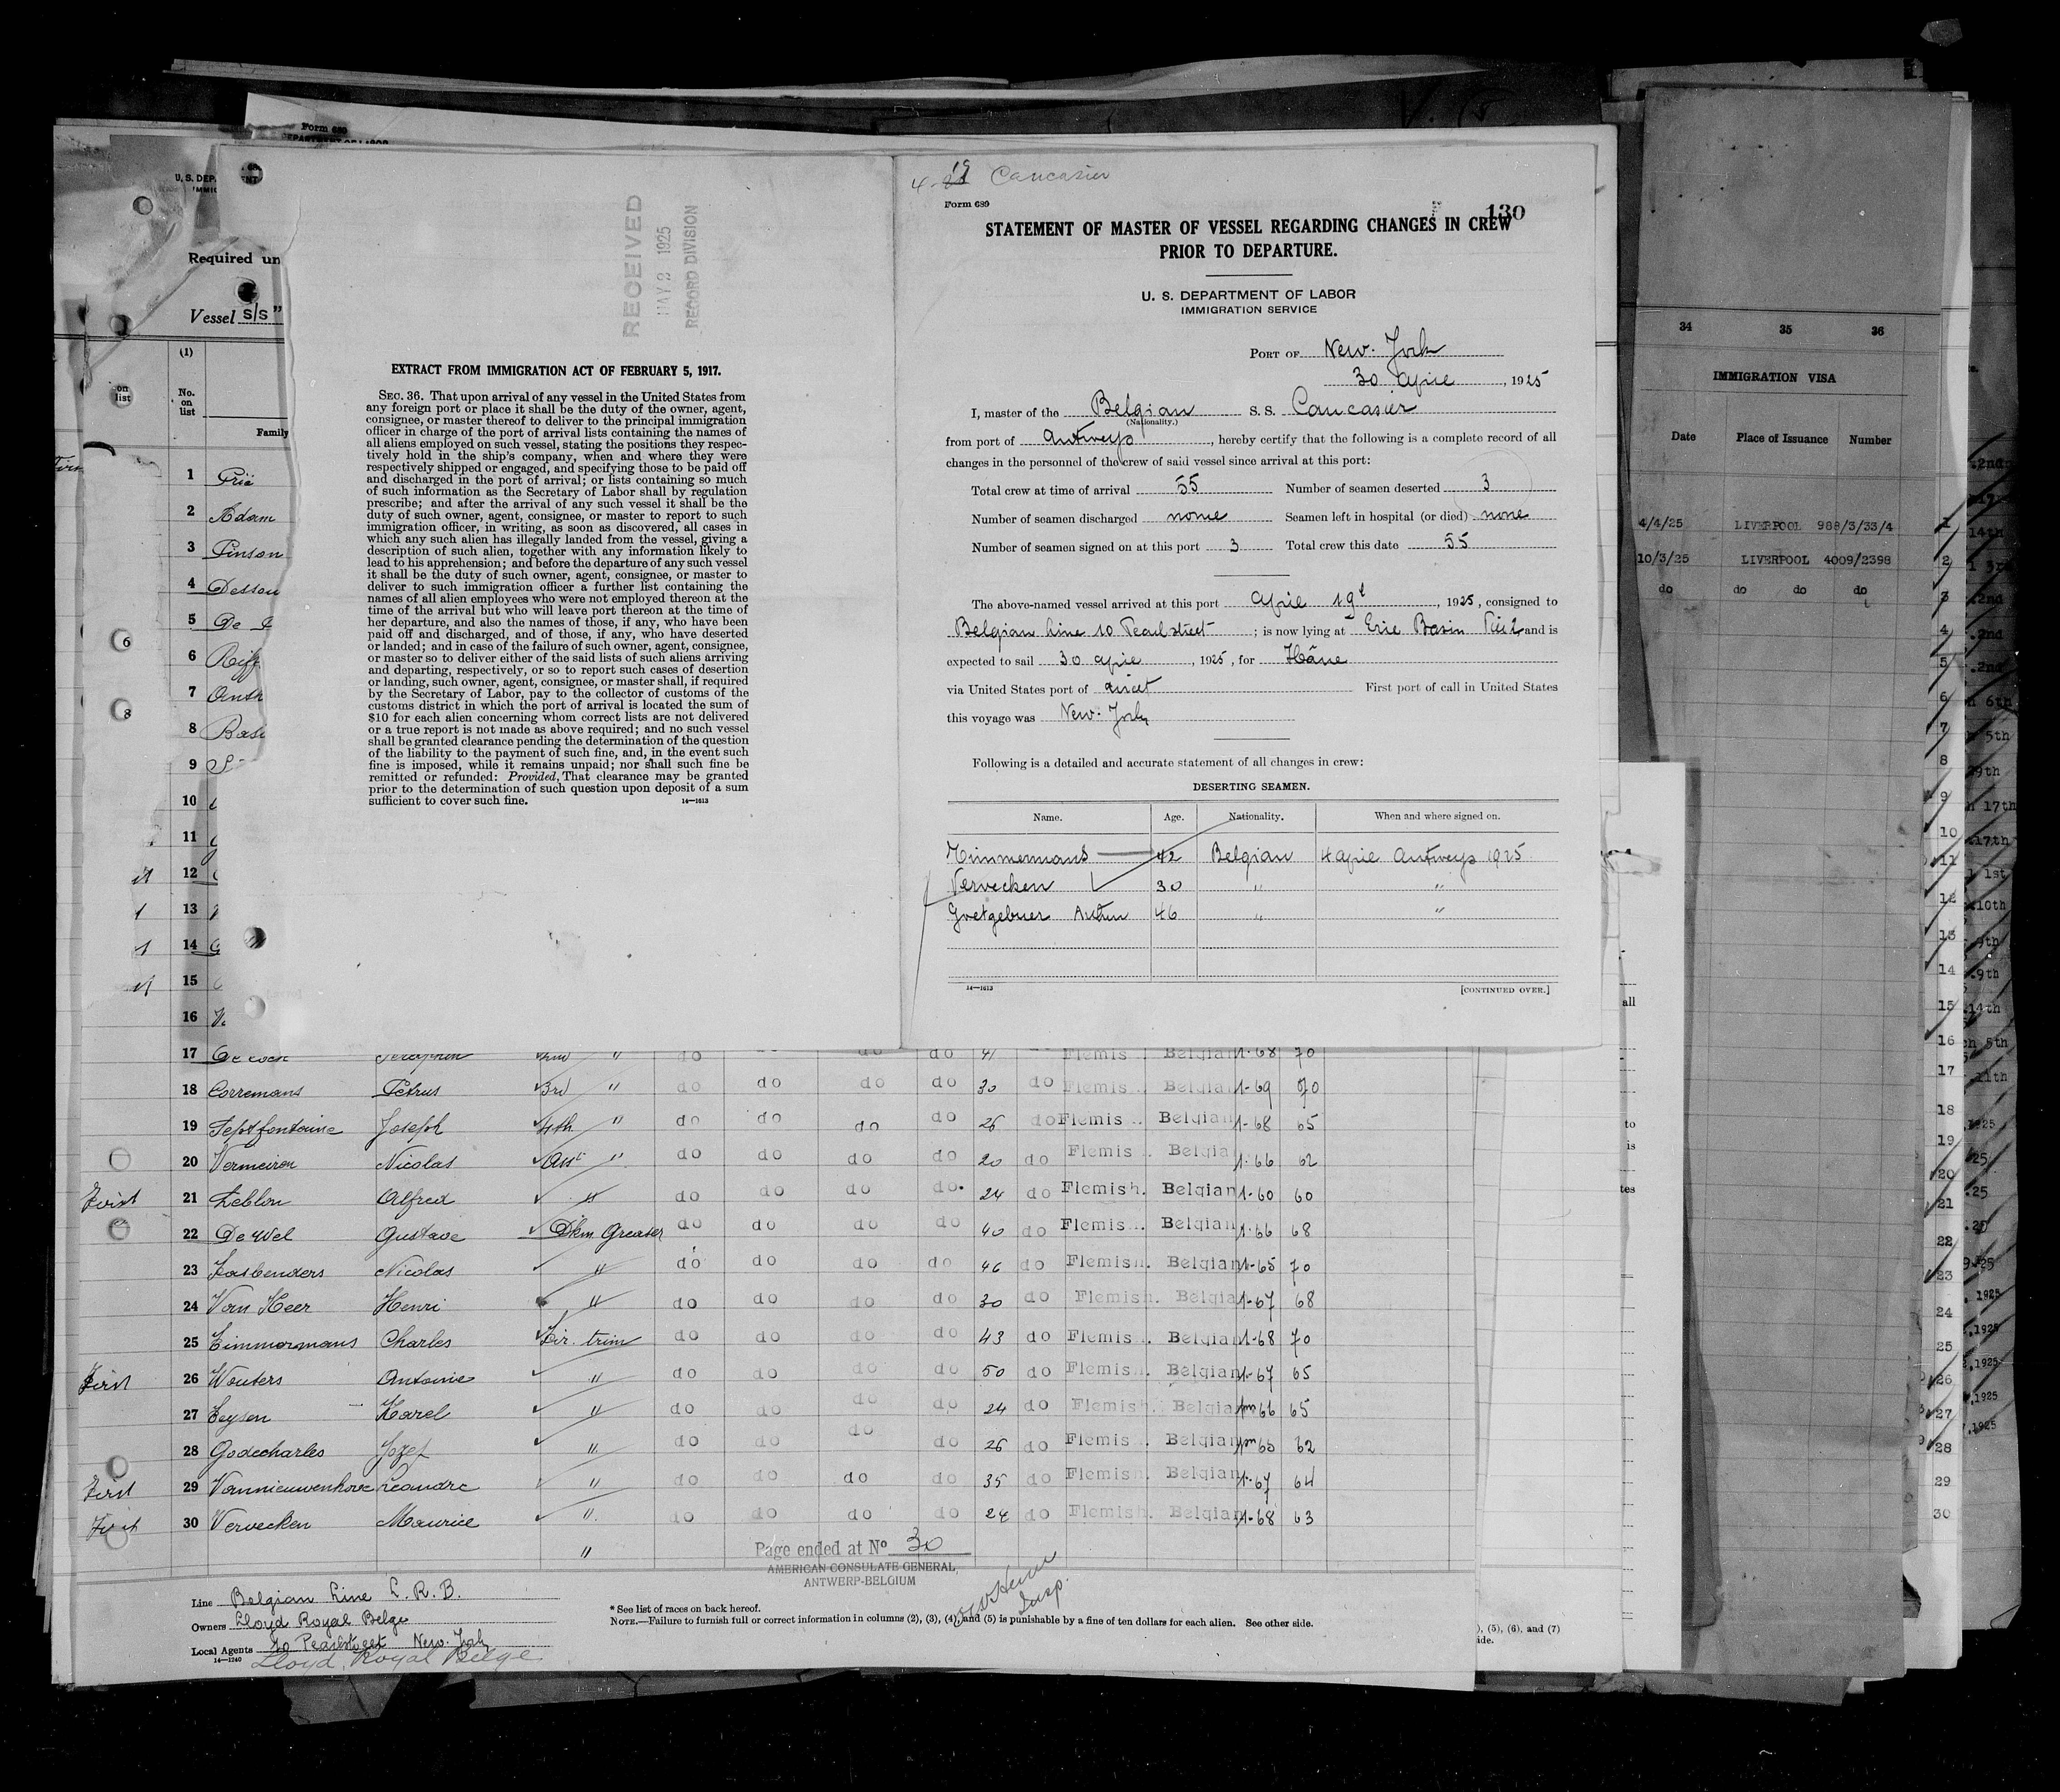 Form 689
U. S. DEP
Required un
Vessel S/S "
(1)
No. on list
Family
1 Prië
2 Adam
3 Pinson
4 Dessou
5 De
6 Riff
7
8 Bas
9
10
11
12
13
14
15
16
RECEIVED
MAY 2 1925
RECORD DIVISION
EXTRACT FROM IMMIGRATION ACT OF FEBRUARY 5, 1917.
SEC. 36. That upon arrival of any vessel in the United States from
any foreign port or place it shall be the duty of the owner, agent,
consignee, or master thereof to deliver to the principal immigration
officer in charge of the port of arrival lists containing the names of
all aliens employed on such vessel, stating the positions they respec-
tively hold in the ship's company, when and where they were
respectively shipped or engaged, and specifying those to be paid off
and discharged in the port of arrival; or lists containing so much
of such information as the Secretary of Labor shall by regulation
prescribe; and after the arrival of any such vessel it shall be the
duty of such owner, agent, consignee, or master to report to such
immigration officer, in writing, as soon as discovered, all cases in
which any such alien has illegally landed from the vessel, giving a
description of such alien, together with any information likely to
lead to his apprehension; and before the departure of any such vessel
it shall be the duty of such owner, agent, consignee, or master to
deliver to such immigration officer a further list containing the
names of all alien employees who were not employed thereon at the
time of the arrival but who will leave port thereon at the time of
her departure, and also the names of those, if any, who have been
paid off and discharged, and of those, if any, who have deserted
or landed; and in case of the failure of such owner, agent, consignee,
or master so to deliver either of the said lists of such aliens arriving
and departing, respectively, or so to report such cases of desertion
or landing, such owner, agent, consignee, or master shall, if required
by the Secretary of Labor, pay to the collector of customs of the
customs district in which the port of arrival is located the sum of
$10 for each alien concerning whom correct lists are not delivered
or a true report is not made as above required; and no such vessel
shall be granted clearance pending the determination of the question
of the liability to the payment of such fine, and, in the event such
fine is imposed, while it remains unpaid; nor shall such fine be
remitted or refunded: Provided, That clearance may be granted
prior to the determination of such question upon deposit of a sum
sufficient to cover such fine. 14—1613
4-19 Caucasier
Form 689
130
STATEMENT OF MASTER OF VESSEL REGARDING CHANGES IN CREW
PRIOR TO DEPARTURE.
U. S. DEPARTMENT OF LABOR
IMMIGRATION SERVICE
PORT OF New-York
30 April, 1925
I, master of the Belgian S. S. Caucasier
(Nationality.)
from port of Antwerp, hereby certify that the following is a complete record of all
changes in the personnel of the crew of said vessel since arrival at this port:
Total crew at time of arrival 55 Number of seamen deserted 3
Number of seamen discharged none Seamen left in hospital (or died) none
Number of seamen signed on at this port 3 Total crew this date 55
The above-named vessel arrived at this port April 19t, 1925, consigned to
Belgian Line 10 Pearlstreet; is now lying at Erie Basin Pier 2 and is
expected to sail 30 April, 1925, for Hâvre
via United States port of direct First port of call in United States
this voyage was New-York
Following is a detailed and accurate statement of all changes in crew:
DESERTING SEAMEN.
Name. Age. Nationality. When and where signed on.
Timmermans 42 Belgian 4 April Antwerp 1925
Vervecken 30 " "
Goetgebuer Arthur 46 " "
14—1613 [CONTINUED OVER.]
17 De cock Seraphin 2nd " do do do do 41 Flemis Belgian 1-68 70
18 Corremans Petrus 3rd " do do do do 30 do Flemis Belgian 1-69 70
19 Septfontaine Joseph 4th " do do do do 26 do Flemis Belgian 1-68 65
20 Vermeiren Nicolas Asst " do do do do 20 do Flemis Belgia 1-66 62
First 21 Leblon Alfred " do do do do 24 do Flemish. Belgian 1-60 60
22 De Wel Gustave Dkm Greaser do do do do 40 do Flemis Belgian 1-66 68
23 Fasbenders Nicolas " do do do do 46 do Flemish. Belgian 1-65 70
24 Van Heer Henri " do do do do 30 do Flemish. Belgia 1-67 68
25 Timmermans Charles Fir. trim do do do do 43 do Flemis Belgian 1-68 70
First 26 Wouters Antoine " do do do do 50 do Flemis Belgian 1-67 65
27 Leysen Karel " do do do do 24 do Flemish. Belgian 1m 66 65
28 Godecharles Jozef " do do do do 26 do Flemis Belgian 1m 65 62
First 29 Vannieuwenhove Leandre " do do do do 35 do Flemish. Belgian 1-67 64
First 30 Vervecken Maurice " do do do do 24 do Flemish. Belgian 1-68 63
"
Page ended at No 30
AMERICAN CONSULATE GENERAL,
ANTWERP-BELGIUM
Insp.
Line Belgian Line L.R.B.
Owners Lloyd Royal Belge
Local Agents 10 Pearlstreet New-York
14—1240 Lloyd Royal Belge
* See list of races on back hereof.
NOTE.—Failure to furnish full or correct information in columns (2), (3), (4), and (5) is punishable by a fine of ten dollars for each alien. See other side.
), (5), (6), and (7)
ide.
all
to
is
tes
34 35 36
IMMIGRATION VISA
Date Place of Issuance Number
4/4/25 LIVERPOOL 988/3/33/4
10/3/25 LIVERPOOL 4009/2398
do do do do
1
2
3
4
5
6
7
8
9
10
11
12
13
14
15
16
17
18
19
20
21
22
23
24
25
26
27
28
29
30